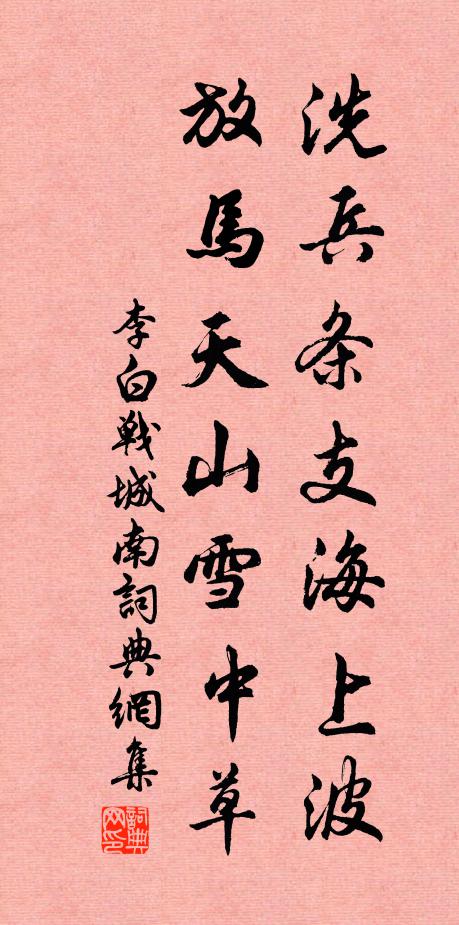 洗兵条支海上波
放馬天山雪中草
李白戰城南詞典網集
詞典
网印